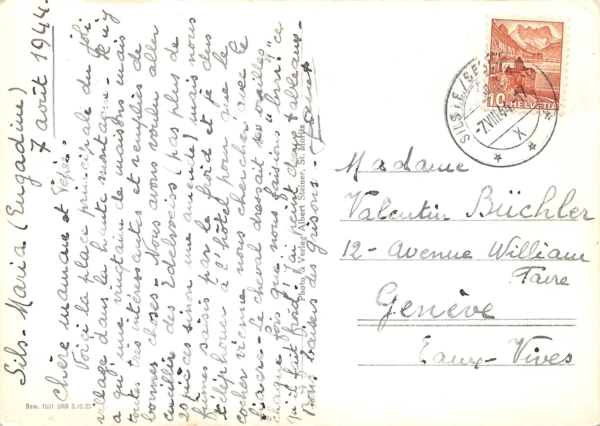 Sils-Maria (Engadine)
7 août 1944-
chère maman et Pépé-
Voici la place principale du joli
village dans la haute montagne- Il n'y
a qu'une vingtaine de maisons mais
toutes très intéressantes et remplies de
bonnes choses- Nous avons voulu aller
cueillir des Edelweiss (pas plus de
20 pièces sinon une amende) mais nous
fûmes saisis par le froid et je dus
téléphoner à l'hôtel pour que le
cocher vienne nous chercher avec le
fiacre- Le cheval dressait ses oreilles
chaque fois que nous faisions "brrr" ce
qu'il fait froid! J'ai peint deux tableaux-
Bons baisers des grisons-
Photo & Verlag Albert Steiner, St. Moritz
Bew. 1601 BRB 3.10.39
10 HELVETIA
SILS i. E./SEGL
-7.VIII.44
X
Madame
Valentin Büchler
12- Avenue William
Favre
Genève
Eaux-Vives